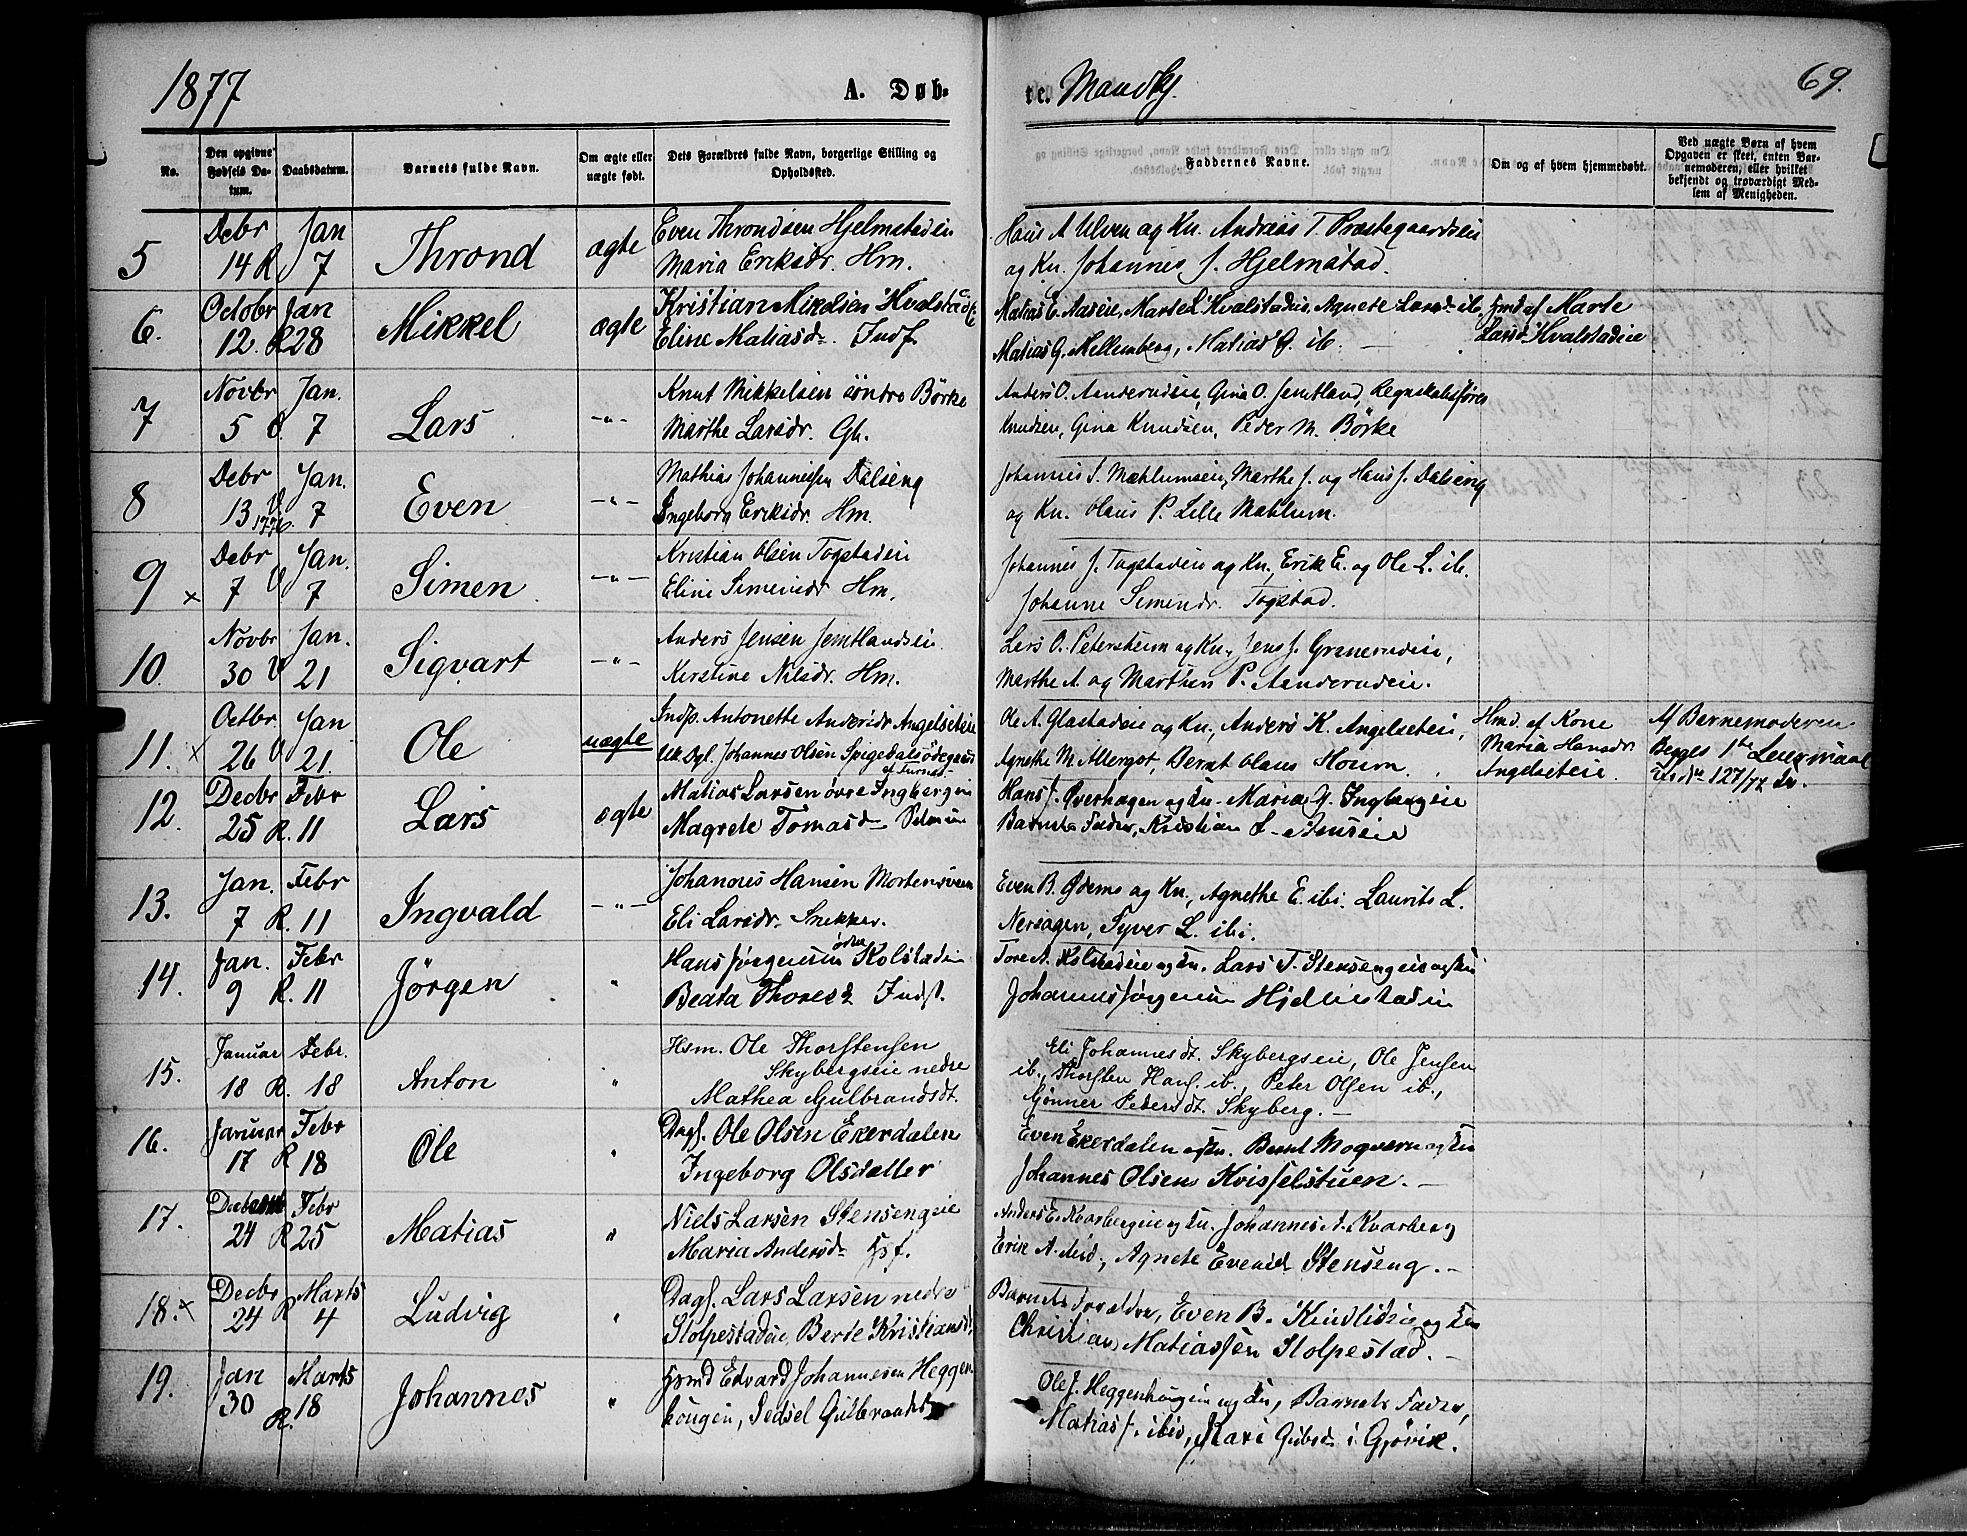 1877
A. Døb-
te. Mandkj.
69.
No.
Den opgivne Fødsels Da-tum.
Daabsdatum.
Barnets fulde Navn.
Om ægte eller uægte født.
Dets Forældres fulde Navn, borgerlige Stilling og Opholdssted.
Faddernes Navne.
Om og af hvem hjemmedøbt.
Ved uægte Børn af hvem
Opgaven er skeet, enten Bar-
nemoderen, eller hvilket
bekjendt og troværdigt Med-
lem af Menigheden.
5 Debr 14 R Jan 7 Thrond ægte
Even Throndsen Hjelmstadeie
Maria Eriksdr. Hm.
Hans A Ulven og Kn. Andreas T. Præstegaardseie
og Kn. Johannes J. Hjelmstad.
6. Octobr 12. R Jan 28 Mikkel ægte
Kristian Mikelsen Hvalstadeie
Eline Matiasd. Indf.
Matias E. Aaseie, Marte L Hvalstadeie, Agnete Larsd ib.
Matias G. Mellemberg, Matias G. ib.
Hmd af Marte
Larsd Hvalstadeie
7 Novbr 5 V. Jan. 7 Lars -"-
Knut Mikkelsen søndre Börke
Marthe Larsdr. Gb.
Anders O. Aanderudeie, Gina O. Jemtland, Regnskabsfører
Knudsen, Gina Knudsen, Peder M. Börke
8 Debr 13 V 1776. Jan. 7 Even -"-
Mathias Johannessen Dalseng
Ingeborg Eriksdr. Hm.
Johannes S. Mæhlumseie, Marthe J. og Hans J. Dalseng
og Kn. Olaus P. Lille Mæhlum.
9 x Debr 7 V Jan. 7 Simen -"-
Kristian Olsen Togstadeie
Eline Simensdr Hm.
Johannes J. Togstadeie og Kn., Erik E. og Ole L. ib.
Johanne Simensdr. Togstad.
10. Novbr 30 V Jan. 21 Sigvart -"-
Anders Jensen Jemtlandseie
Kerstine Nilsdr. Hm.
Lars O. Petersheim og Kn., Jens J. Grinerudeie,
Marthe A. og Marthin P. Aanderudeie.
11. x Octbr 26 V Jan 21. Ole uægte
Indp. Antonette Andersdr Angelseteie
Uk Ogl. Johannes Olsen Spigedalsødegaard
af Furnæs
Ole A. Glæstadeie og Kn., Anders K. Angelseteie,
Agnethe M. Allergot, Bernt Olaus Houm.
Hmd. af Kone
Maria Hansdr
Angelseteie.
Af Barnemoderen
Begges 1te Leiermaal
127/77
12. Decbr 25 R. Febr 11 Lars ægte
Matias Larsen øvre Ingbergeie
Magrete Tomasd
Hans J. Øverhagen og Kn. Maria G. Ingbergeie
Barnets Fader, Kristian L
13. Jan. 7 R. Febr 11 Ingvald -"-
Johannes Hansen Mortensveen
Eli Larsdr. Snekker.
Even B. Ødems og Kn., Agnethe E. ibi. Laurits L.
Nersagen, Syver L. ibi.
14. Jan. 9 R. Febr 11 Jörgen "
Hans Jørgensen østre Kolstadeie
Beata Thoresd Indst.
Tore A. Kolstadeie og Kn. Lars T. Stensengeie og Kn
Johannes Jørgensen Hjelmstadeie
15. Januar 18 R. Febr. 18 Anton "
Hsm. Ole Thorstensen
Skybergseie nedre
Mathea Gulbrandsdt.
Eli Johannesdt. Skybergseie, Ole Jensen
ib., Thorsten Hans. ib., Peter Olsen ib.,
Gønner Pedersdt. Skyberg. -
16. Januar 17 R Febr 18 Ole "
Dagl. Ole Olsen Ekerdalen
Ingeborg Olsdatter
Even Ekerdalen og Kn. Bernt Moqvern og Kn
Johannes Olsen Kvisselstuen. -
17. Decbr 24 R Febr 25 Matias "
Niels Larsen Stensengeie
Maria Andersd. Hsf.
Anders E. Kvarbergeie og Kn. Johannes A. Kvarberg
Erik A. ibid., Agnete Evensd Stenseng. -
18. x Decbr 24 R Marts 4 Ludvig "
Dagl. Lars Larsen nedre
Stolpestadeie, Berte Kristiansd.
Barnets Forældre, Even B. Kindlidseie og Kn
Christian Matiassen Stolpestad. -
19. Jan 30 R. Marts 18 Johannes "
Hsmd Edvard Johannesen Heggen-
hougen, Sedsel Gulbrandsd
Ole J. Heggenhougen og Kn, Barnets Fader,
Matias J. ibid, Kari Gulbsd i Gjøvik.